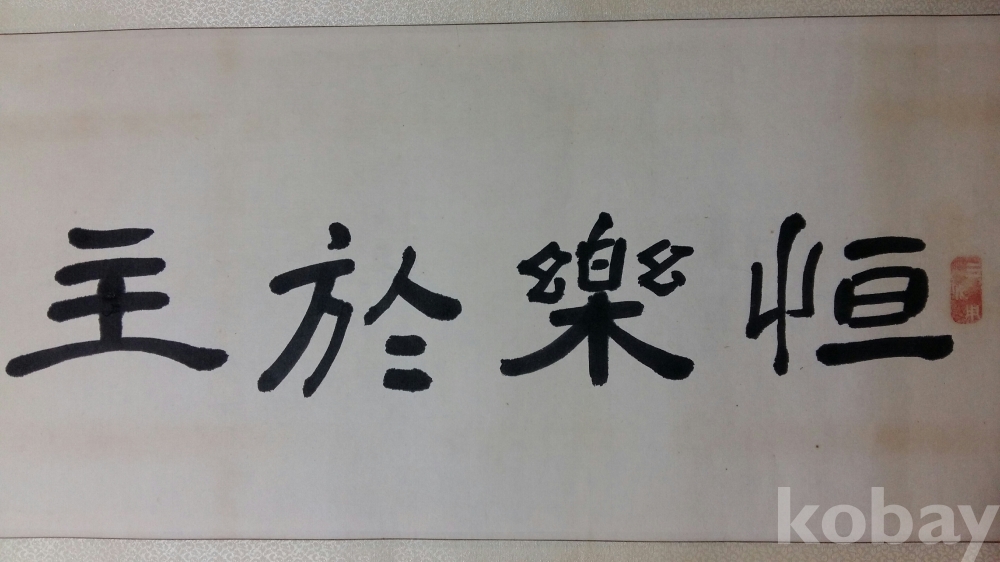 恒樂於主
kobay